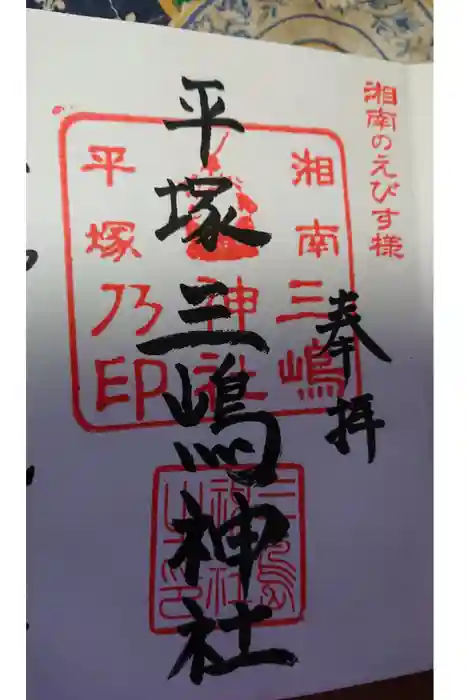 湘南のえびす様
奉拝
平塚三嶋神社
湘南三嶋
神社
平塚乃印
三嶋神社之印